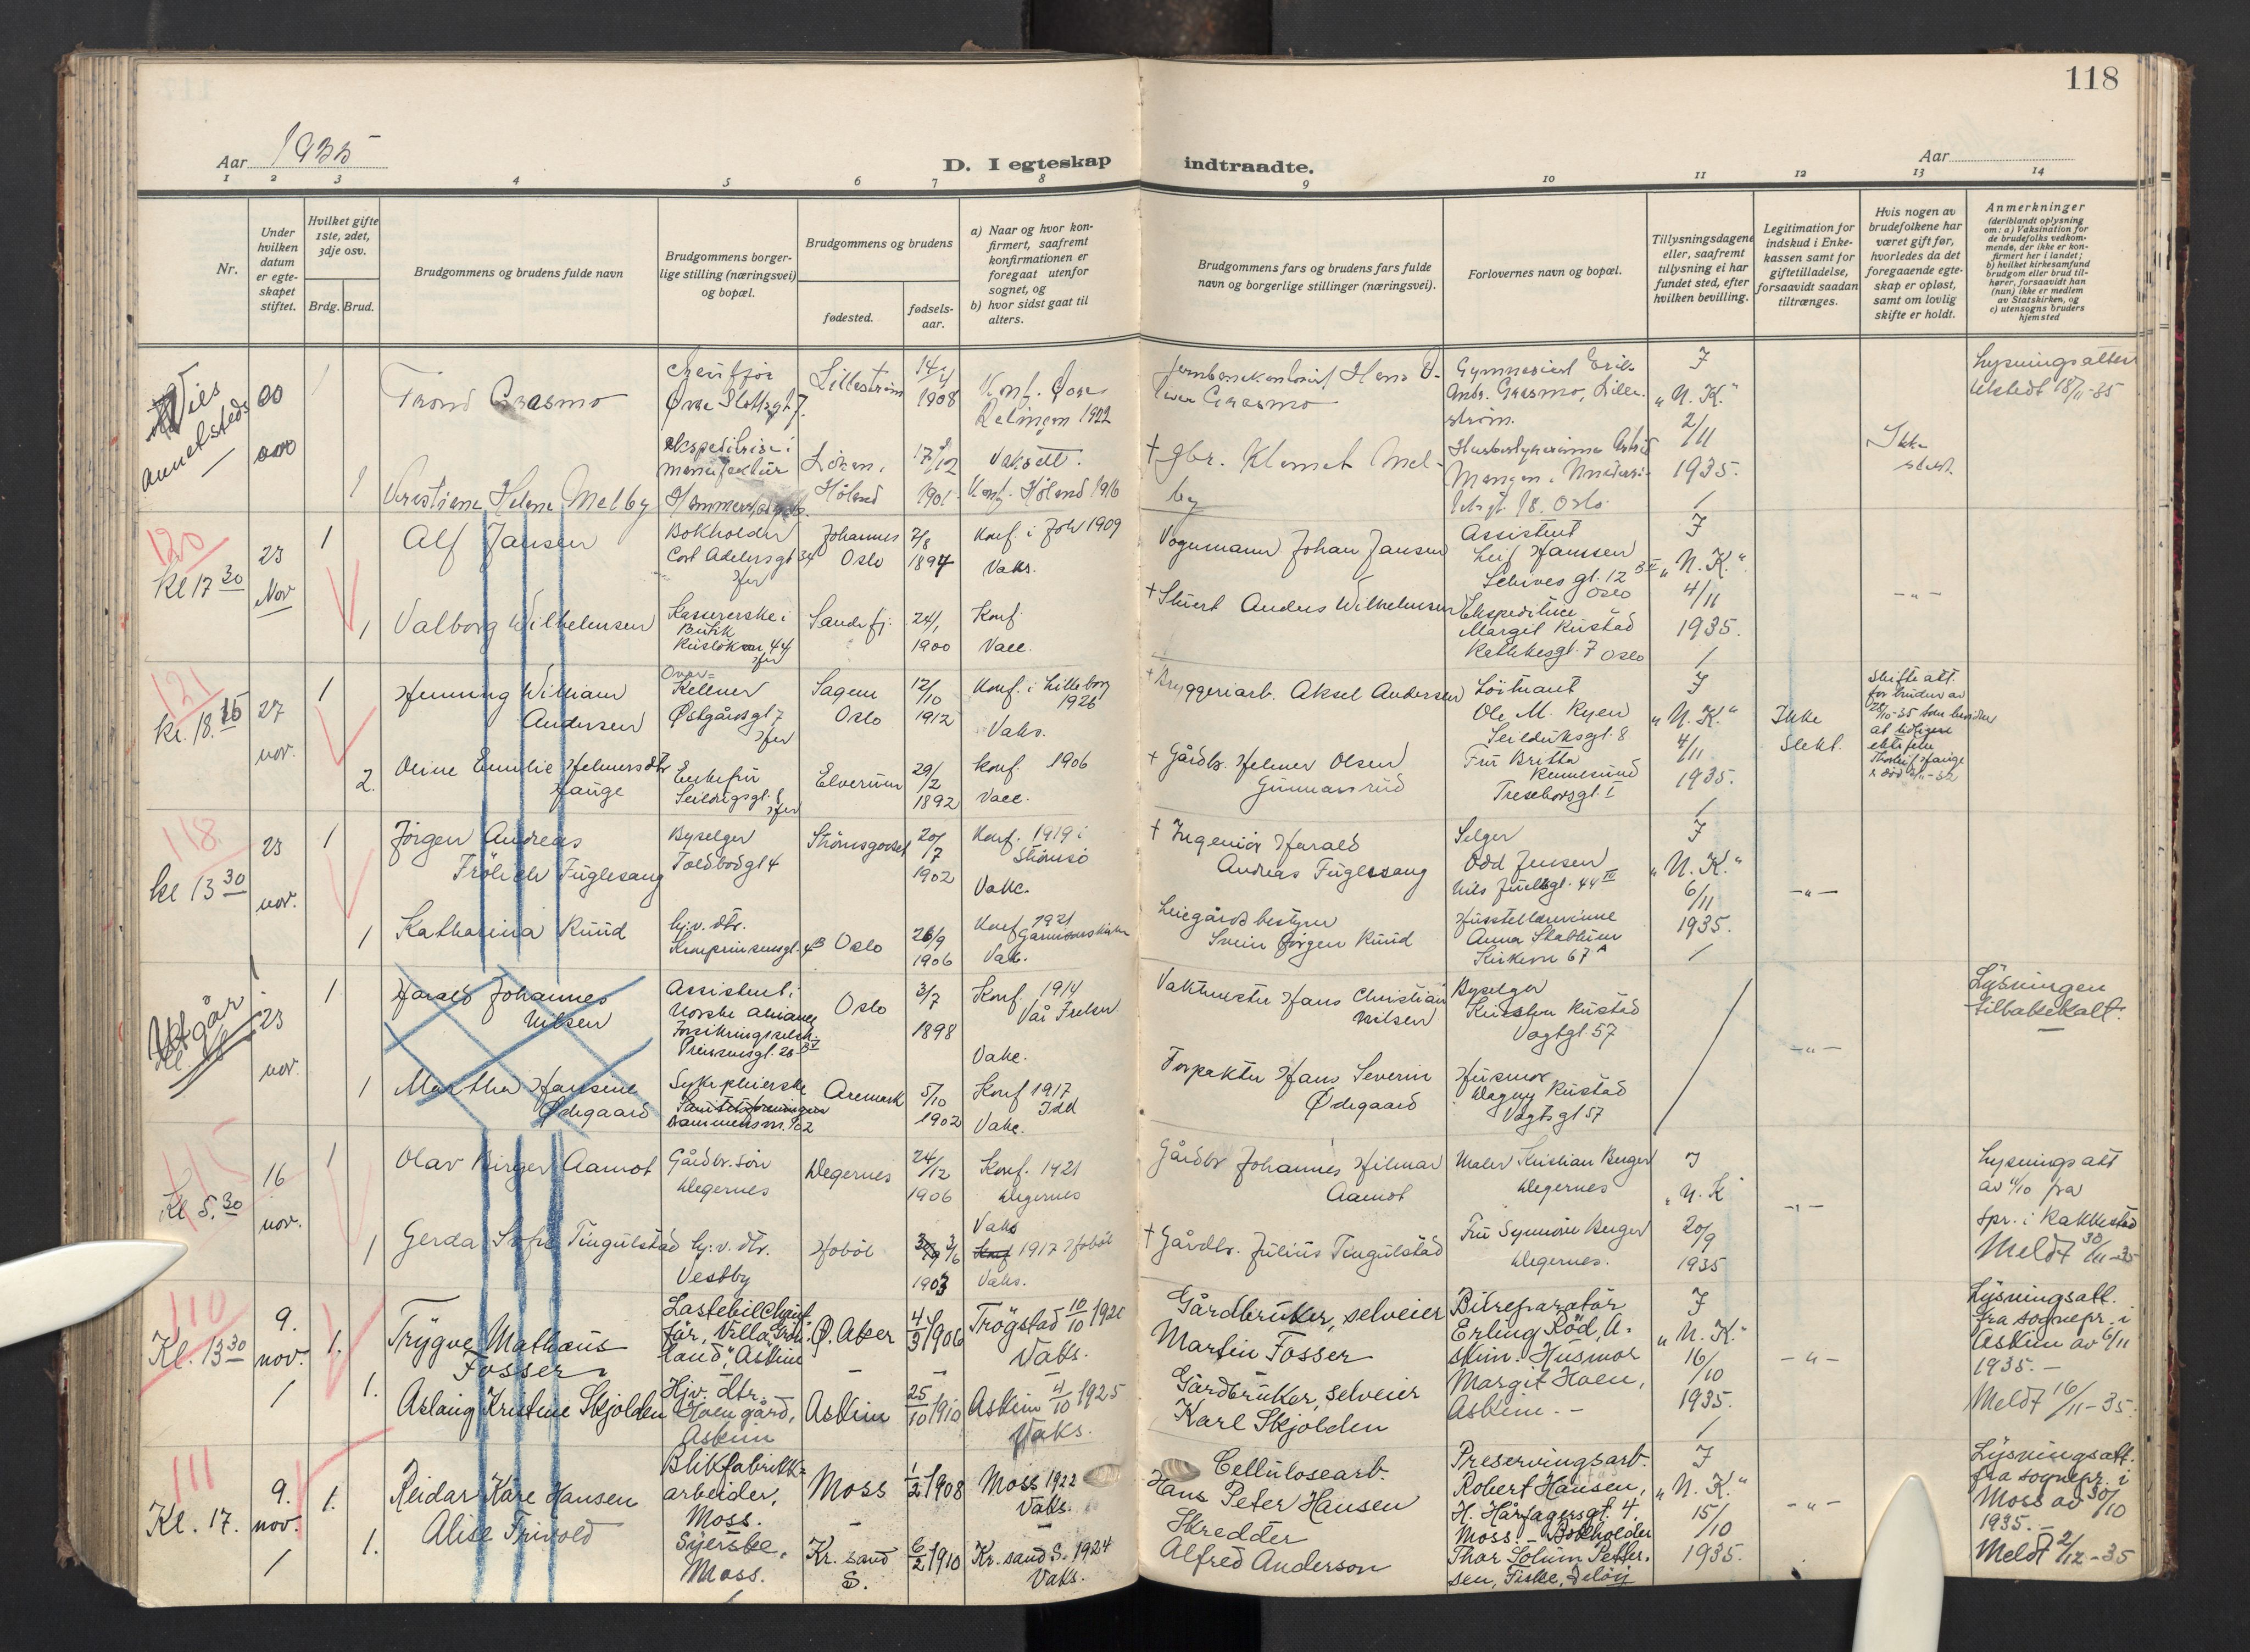 118
Aar 1935
D. I egteskap indtraadte.
Aar
1 2 3 4 5 6 7 8 9 10 11 12 13 14
Nr.
Under
hvilken
datum
er egte-
skapet
stiftet.
Hvilket gifte
1ste, 2det,
3dje osv.
Brdg. Brud.
Brudgommens og brudens fulde navn
Brudgommens borger-
lige stilling (næringsvei)
og bopæl.
Brudgommens og brudens
fødested.
fødsels-
aar.
a) Naar og hvor kon-
firmert, saafremt
konfirmationen er
foregaat utenfor
sognet, og
b) hvor sidst gaat til
alters.
Brudgommens fars og brudens fars fulde
navn og borgerlige stillinger (næringsvei).
Forlovernes navn og bopæl.
Tillysningsdagene
eller, saafremt
tillysning ei har
fundet sted, efter
hvilken bevilling.
Legitimation for
indskud i Enke-
kassen samt for
giftetilladelse,
forsaavidt saadan
tiltrænges.
Hvis nogen av
brudefolkene har
været gift før,
hvorledes da det
foregaaende egte-
skap er opløst,
samt om lovlig
skifte er holdt.
Anmerkninger
(deriblandt oplysning
om: a) Vaksination for
de brudefolks vedkom-
mende, der ikke er kon-
firmert her i landet;
b) hvilket kirkesamfund
brudgom eller brud til-
hører, forsaavidt han
(hun) ikke er medlem
av Statskirken, og
c) utensogns bruders
hjemsted
Vies
annetsteds
1
Trond Grasmo
Øvre Slottsgt 7.
Lillestrøm
14/4
1908
Konf. Øvre
Rælingen 1922
Gymnasiast Erik
Grasmo, Lille-
strøm.
I
"N.K."
2/11
1935.
Lysningsattest
utstedt 18/11-35
1
Kristiane Helene Melby
ekspeditrise i
manufaktur
Høland
1901
Vaksett.
Konf. Høland 1916
+ gbr. Klemet Mel-
by
Oslo
Ikke
slekt.
120
Kl 17 30
23
Nov
1
Alf Jansen
Bokholder
Cort Adelersgt 34
Oslo
2/8
1894
Konf. i Joh 1909
Vaks.
Vognmann Johan Jansen
Assistent
Leif Hanssen
Schives gt. 12
Oslo
I
"N.K."
4/11
1935.
1
Valborg Wilhelmsen
Kasserske i
Butik
44
Sandefj.
24/1
1900
Konf
Vacc.
+ Stuert Anders Wilhelmsen
Ekspeditrice
Margit Rustad
7 Oslo
-"-
121
kl. 18.15
27
nov.
1
Henning William
Andersen
Over=
Kellner
Østgårdsgt 7
Sagene
Oslo
12/10
1912
Konf. i Lilleborg
1926
Vaks.
+ Bryggeriarb. Aksel Andersen
Löitnant
Ole M. Ryen
Seilduksgt. 8
I
"N.K."
4/11
1935.
Ikke
slekt.
Skifte att.
for bruden av
2.
Oline Emilie Helmersdtr
Hauge
Enkefru
Elverum
29/2
1892
Konf. 1906
Vacc.
+ Gårdbr. Helmer Olsen
Gunnarsrud
Fru Britta
118
kl 13 30
23
nov.
1
Jörgen Andreas
Frölich Fuglesang
Byselger
Toldbodgt 4
Strömsgodset
20/7
1902
Konf. 1919 i
Strömsö
Vakc.
+ Ingeniör Harald
Andreas Fuglesang
Selger
Odd Jensen
Nils Juelsgt. 44 III
I
"N.K."
6/11
1935.
-"-
1
Katharina Ruud
hj.v. dtr.
Kronprinsensgt. 4B
Oslo
26/9
1906
Konf. 1921
Garnisonskirken
Vak.
Leiegårds bestyrer
Svein Jörgen Ruud
Husstellærerinne
Anna Stabbum
Kirkevn 67A
Utgår!
23
nov.
1
Harald Johannes
Nilsen
Assistent i
Norske Alliance
Forsikringsselsk.
Prinsensgt. 26
Oslo
3/7
1898
Konf. 1914
Vår Frelser
Vakc.
Vaktmester Hans Christian
Nilsen
Byselger
Kristen Rustad
Vogtgt. 57
-"-
Lysningen
tilbakekalt.
1
Martha Hansine
Ødegaard
Sykepleierske
Sanitetsforeningen
Drammensvn. 102
Aremark
5/10
1902
Konf 1917
Idd
Vakc.
Forpakter Hans Severin
Ødegaard
Husmor
Dagny Rustad
Vogtsgt 57
115
Kl 5.30
16
nov.
1
Olav Birger Aamot
Gårdbr. sön
Degernes
Degernes
24/12
1906
Konf. 1921
Degernes
Vaks
Gårdbr Johannes Hilmar
Aamot
Maler Kristian Berger
Degernes
I
"N.K"
20/9
1935
-"-
Lysningsatt
av 4/10 fra
Spr. i Rakkestad
Meldt 30/11-35
1
Gerda Sofie Tingulstad
hj.v. dtr.
Vestby
Hobøl
3/6
1903
Konf 1917 Hobøl
Vaks.
+ Gårdbr. Julius Tingulstad
Fru Synnöve Berger
Degernes.
110
Kl. 13 30
9.
nov.
1.
Trygve Mathæus
Fosser
Lastebilchauf-
för, Villa "Grön-
land", Askim
Ø. Aker
4/3 1906
Trögstad 10/10 1920
Vaks.
Gårdbruker, selveier
Martin Fosser
Bilreparatör
Erling Röd, A-
skim. Husmor
Margit Hoen,
Askim. -
I
"N.K."
16/10
1935.
-"-
Lysningsatt.
fra sognepr. i
Askim av 6/11
1935. -
Meldt 16/11-35.
1.
Aslaug Kristine Skjolden
Hjv. dtr.
Hoen gård,
Askim
Askim
25/10 1910
Askim 4/10 1925
Vaks.
Gårdbruker, selveier
Karl Skjolden
111
Kl. 17.
9.
nov.
1.
Reidar Kåre Hansen
Blikfabrikk=
arbeider,
Moss.
Moss
1/2 1908
Moss 1922
Vaks.
Cellulosearb.
Hans Peter Hansen
Preservingsarb.
Robert Hansen,
H. Hårfagersgt. 4,
Moss. - Bokholder
Thor Solum Petter-
sen, Fiske, Jelöy
I
"N.K."
15/10
1935.
-"-
Lysningsatt.
fra sognepr. i
Moss av 30/10
1935. -
Meldt 2/12-35
1.
Alise Frivold
Syerske,
Moss.
Kr. sand
S.
6/2 1910
Kr. sand S. 1924
Vaks.
Skredder
Alfred Anderson